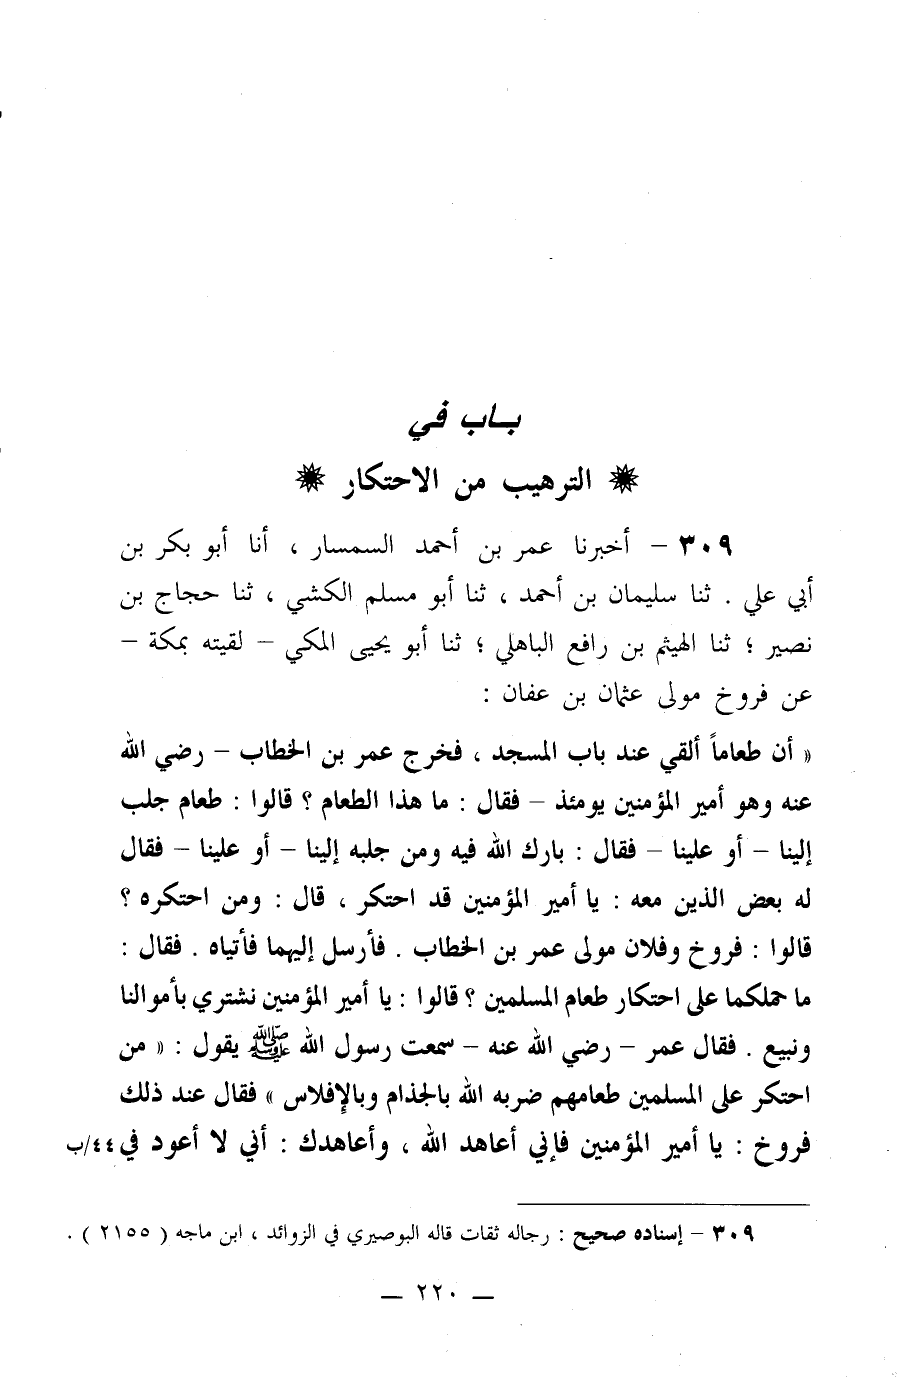 بـاب في
❋ الترهيب من الاحتكار ❋
٣٠٩ – أخبرنا عمر بن أحمد السمسار ، أنا أبو بكر بن
أبي علي . ثنا سليمان بن أحمد ، ثنا أبو مسلم الكشي ، ثنا حجاج بن
نصير ؛ ثنا الهيثم بن رافع الباهلي ؛ ثنا أبو يحيى المكي – لقيته بمكة –
عن فروخ مولى عثمان بن عفان :
« أن طعاماً ألقي عند باب المسجد ، فخرج عمر بن الخطاب – رضي الله
عنه وهو أمير المؤمنين يومئذ – فقال : ما هذا الطعام ؟ قالوا : طعام جلب
إلينا – أو علينا – فقال : بارك الله فيه ومن جلبه إلينا – أو علينا – فقال
له بعض الذين معه : يا أمير المؤمنين قد احتكر ، قال : ومن احتكره ؟
قالوا : فروخ وفلان مولى عمر بن الخطاب . فأرسل إليهما فأتياه . فقال :
ما حملكما على احتكار طعام المسلمين ؟ قالوا : يا أمير المؤمنين نشتري بأموالنا
ونبيع . فقال عمر – رضي الله عنه – سمعت رسول الله ﷺ يقول : « من
احتكر على المسلمين طعامهم ضربه الله بالجذام وبالإفلاس » فقال عند ذلك
فروخ : يا أمير المؤمنين فإني أعاهد الله ، وأعاهدك : أني لا أعود في ٤٤/ب
٣٠٩ – إسناده صحيح : رجاله ثقات قاله البوصيري في الزوائد ، ابن ماجه ( ٢١٥٥ ) .
— ٢٢٠ —